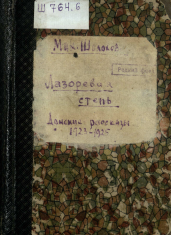 Ш 764.6
Мих. Шолохов
Лазоревая
степь
Донские рассказы
1923-1925